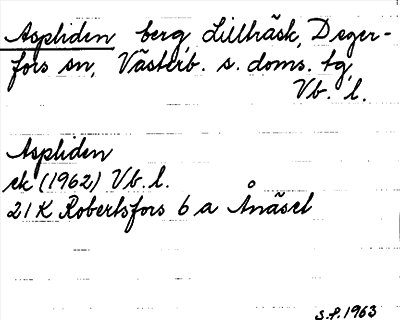 Aspliden berg, Lillträsk, Deger-
fors sn, Västerb. s. doms. tg,
Vb. l.
Aspliden
ek (1962) Vb. l.
21 K Robertsfors 6 a Ånäset
s.f. 1963